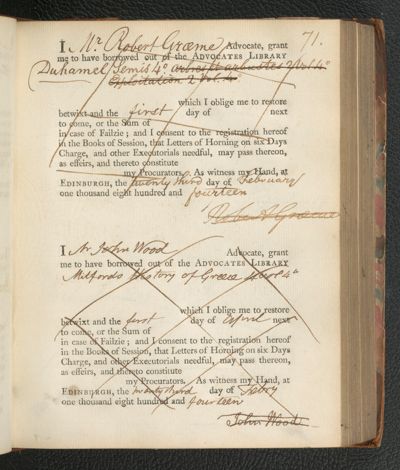 71.
I Mr. Robert Græme Advocate, grant
me to have borrowed out of the ADVOCATES LIBRARY
Duhamel Semis 4o arbres et arbustes 2 Vol. 4o
Exploitation 2 Vol. 4o
which I oblige me to restore
betwixt and the first day of next
to come, or the Sum of
in case of Failzie; and I consent to the registration hereof
in the Books of Session, that Letters of Horning on six Days
Charge, and other Executorials needful, may pass thereon,
as effeirs, and thereto constitute
my Procurators. As witness my Hand, at
EDINBURGH, the twenty third day of February
one thousand eight hundred and fourteen
Robert Græme
I Mr John Wood Advocate, grant
me to have borrowed out of the ADVOCATES LIBRARY
Mitfords History of Greece 4o
which I oblige me to restore
betwixt and the first day of April next
to come, or the Sum of
in case of Failzie; and I consent to the registration hereof
in the Books of Session, that Letters of Horning on six Days
Charge, and other Executorials needful, may pass thereon,
as effeirs, and thereto constitute
my Procurators. As witness my Hand, at
EDINBURGH, the twenty third day of Febry
one thousand eight hundred and fourteen
John Wood